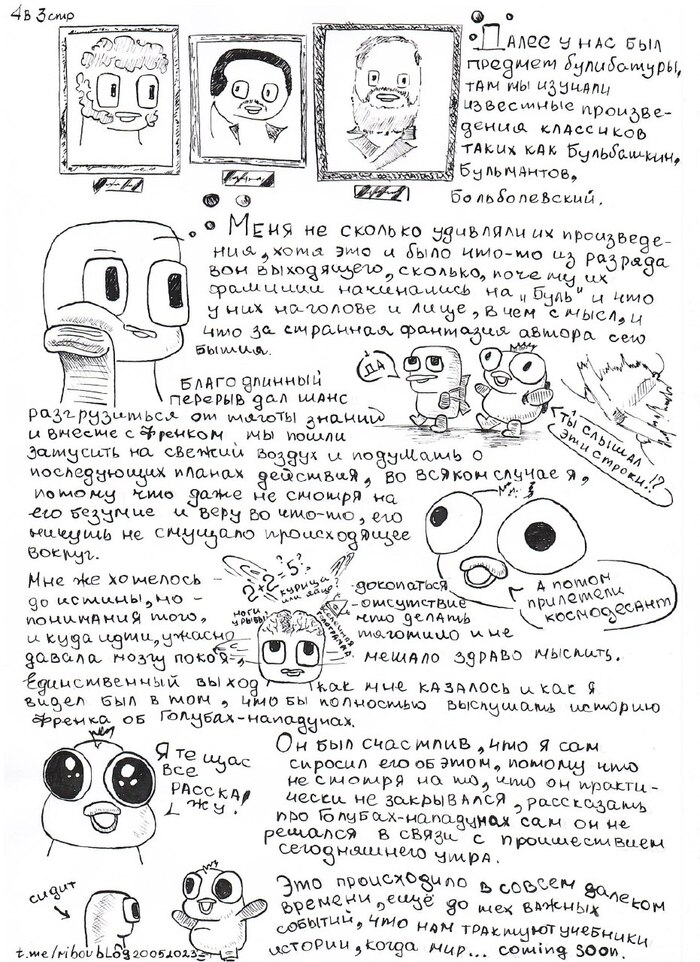 4В 3 стр
Далее у нас был
предмет булибатуры,
там мы изучали
известные произве-
дения классиков
таких как Бульбашкин,
Бульмантов,
Больболевский.
Меня не сколько удивляли их произведе-
ния, хотя это и было что-то из разряда
вон выходящего, сколько, почему их
фамилии начинались на „Буль" и что
у них на голове и лице, в чем смысл, и
что за странная фантазия автора сего
бытия.
Благо длинный
перерыв дал шанс
разгрузиться от тяготы знаний
и вместе с Френком, мы пошли
затусить на свежий воздух и подумать о
последующих планах действия, во всяком случае я,
потому что даже не смотря на
его безумие и веру во что-то, его
ничуть не смущало происходящее
вокруг.
ДА
ты слышал
эти строки!!?
А потом
прилетели
космодесант
Мне же хотелось - докопаться
до истины, но - отсутствие
понимания того, что делать
и куда идти, ужасно тяготило и не
давала мозгу покоя, мешало здраво мыслить.
2+2=5?
курица
или яйцо?
ноги
у рыбы?
Единственный выход, как мне казалось и как я
видел был в том, что бы полностью выслушать историю
Френка об Голубах-нападунах.
Я те щас
все
расска
жу!
Он был счастлив, что я сам
спросил его об этом, потому что
не смотря на то, что он практи-
чески не закрывался, рассказать
про Голубах-нападунах сам он не
решался в связи с проишествием
сегодняшнего утра.
сидит
Это происходило в совсем далеком
времени, ещё до тех важных
событий, что нам трактуют учебники
истории, когда мир... coming soon.
t.me/riboublog20052023